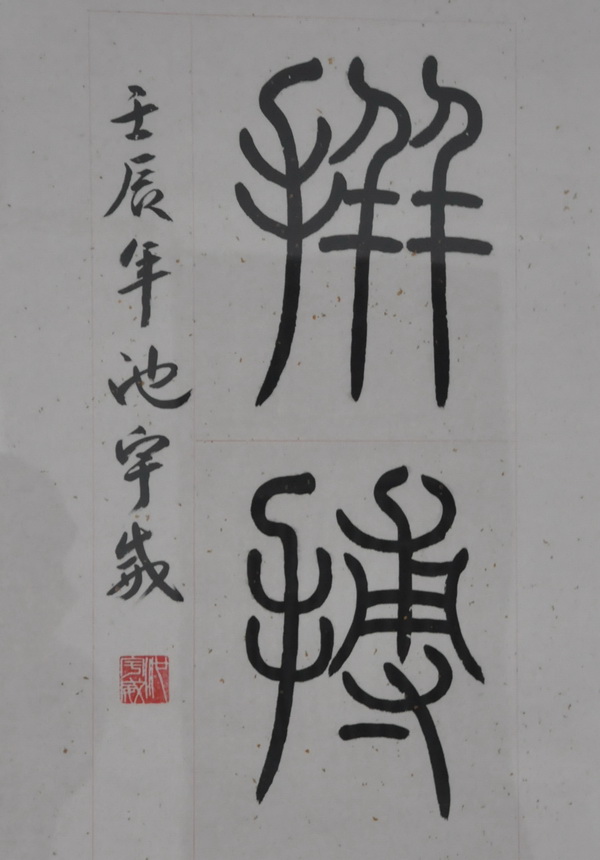 拼搏
壬辰年池宇威
池宇威